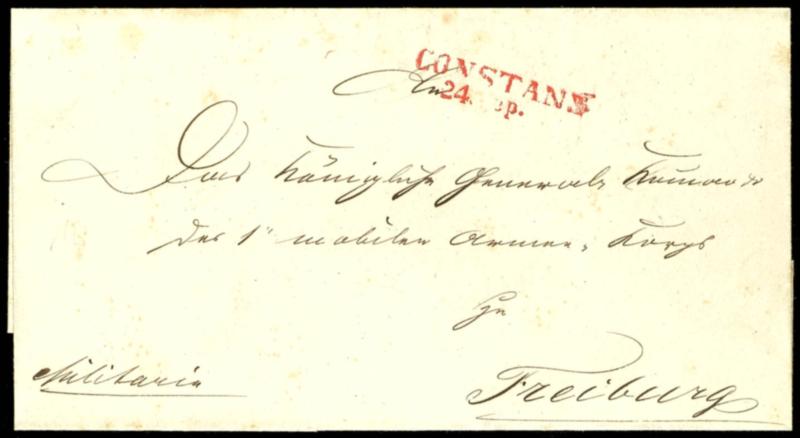 CONSTANZ
24. Sep.
An
Das Königliche General-Komando
des 1ten mobilen Armee-Korps
zu
Freiburg
Militaria